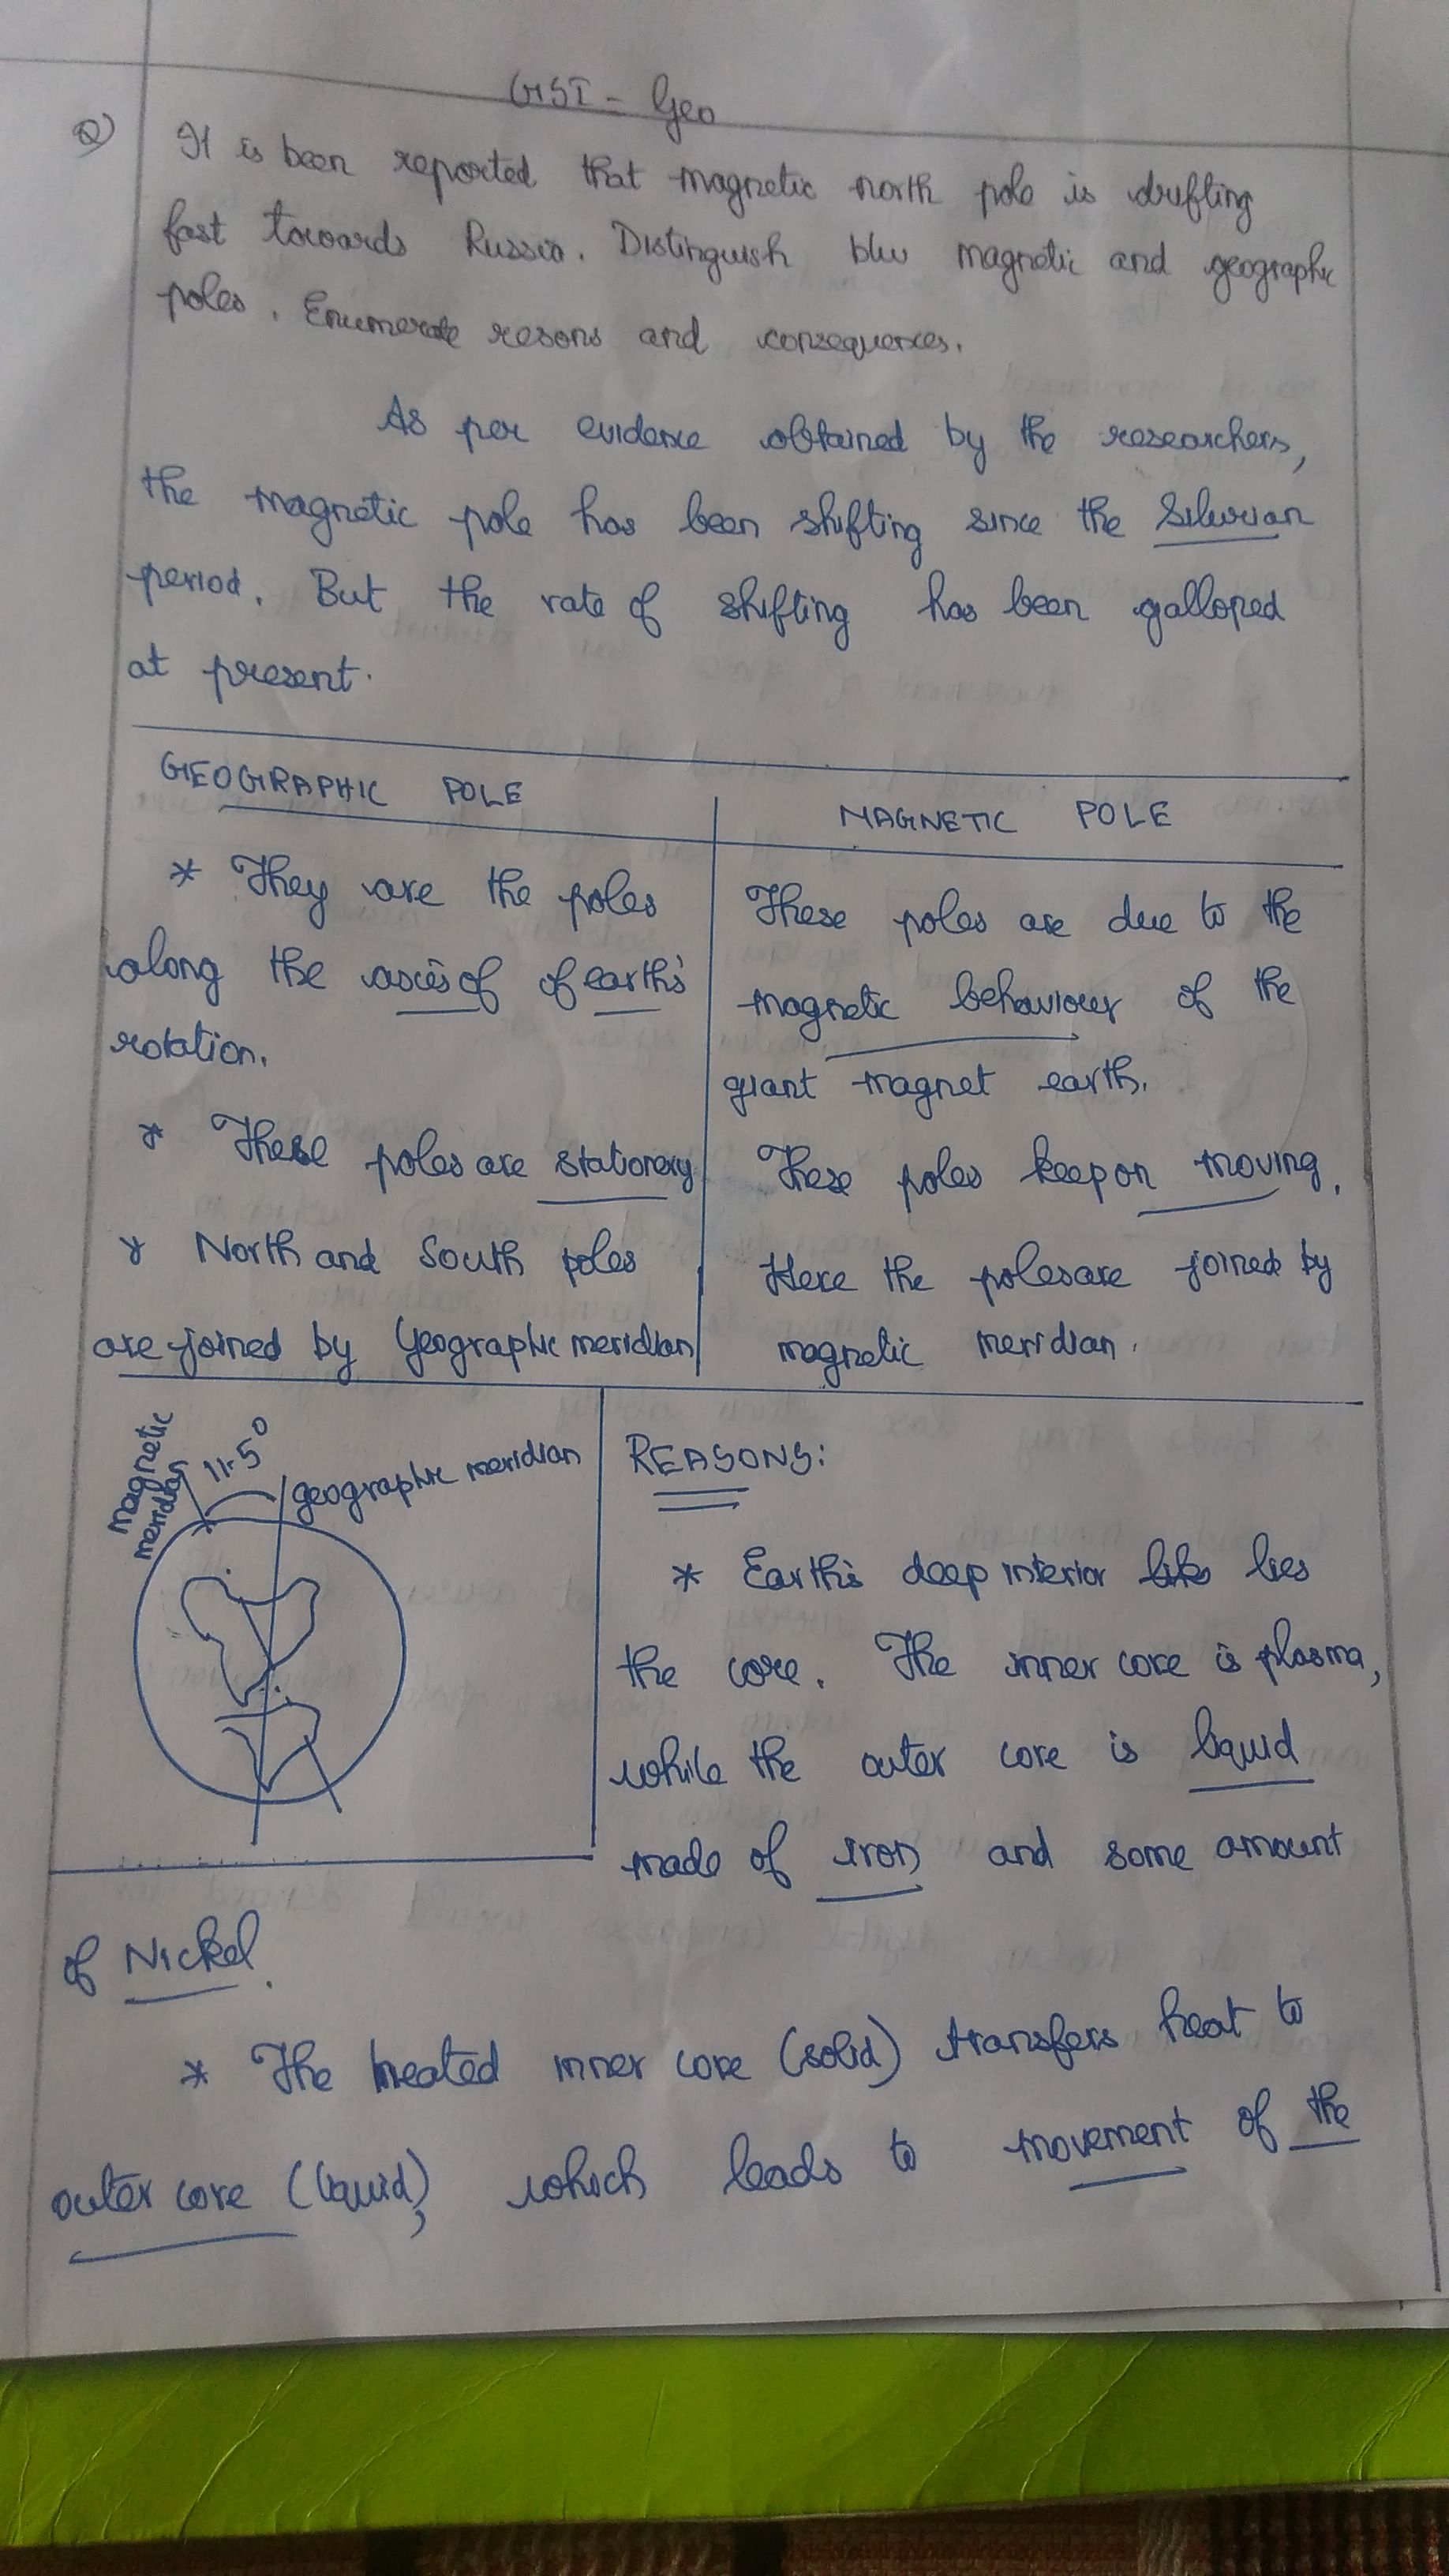 GSI - Geo
Q) It is been reported that magnetic north pole is drifting
fast towards Russia. Distinguish b/w magnetic and geographic
poles. Enumerate resons and consequences.
As per evidence obtained by the researchers,
the magnetic pole has been shifting since the Silurian
period. But the rate of shifting has been galloped
at present.
GEOGRAPHIC POLE
* They are the poles
along the axis of of earth's
rotation.
* These poles are stationery
* North and South poles
are joined by Geographic meridian
MAGNETIC POLE
These poles are due to the
magnetic behaviour of the
giant magnet earth.
These poles keep on moving.
Here the poles are joined by
magnetic meridian.
magnetic
meridian
11.5°
geographic meridian
REASONS:
* Earth's deep interior lies
the core. The inner core is plasma,
while the outer core is liquid
made of iron and some amount
of Nickel.
* The heated inner core (solid) transfers heat to
outer core (liquid), which leads to movement of the